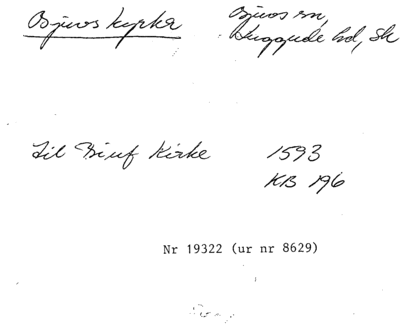 Bjuvs kyrka
Bjuvs sn,
Luggude hd, Sk
Til Biuf Kirke 1593
KB 196
Nr 19322 (ur nr 8629)